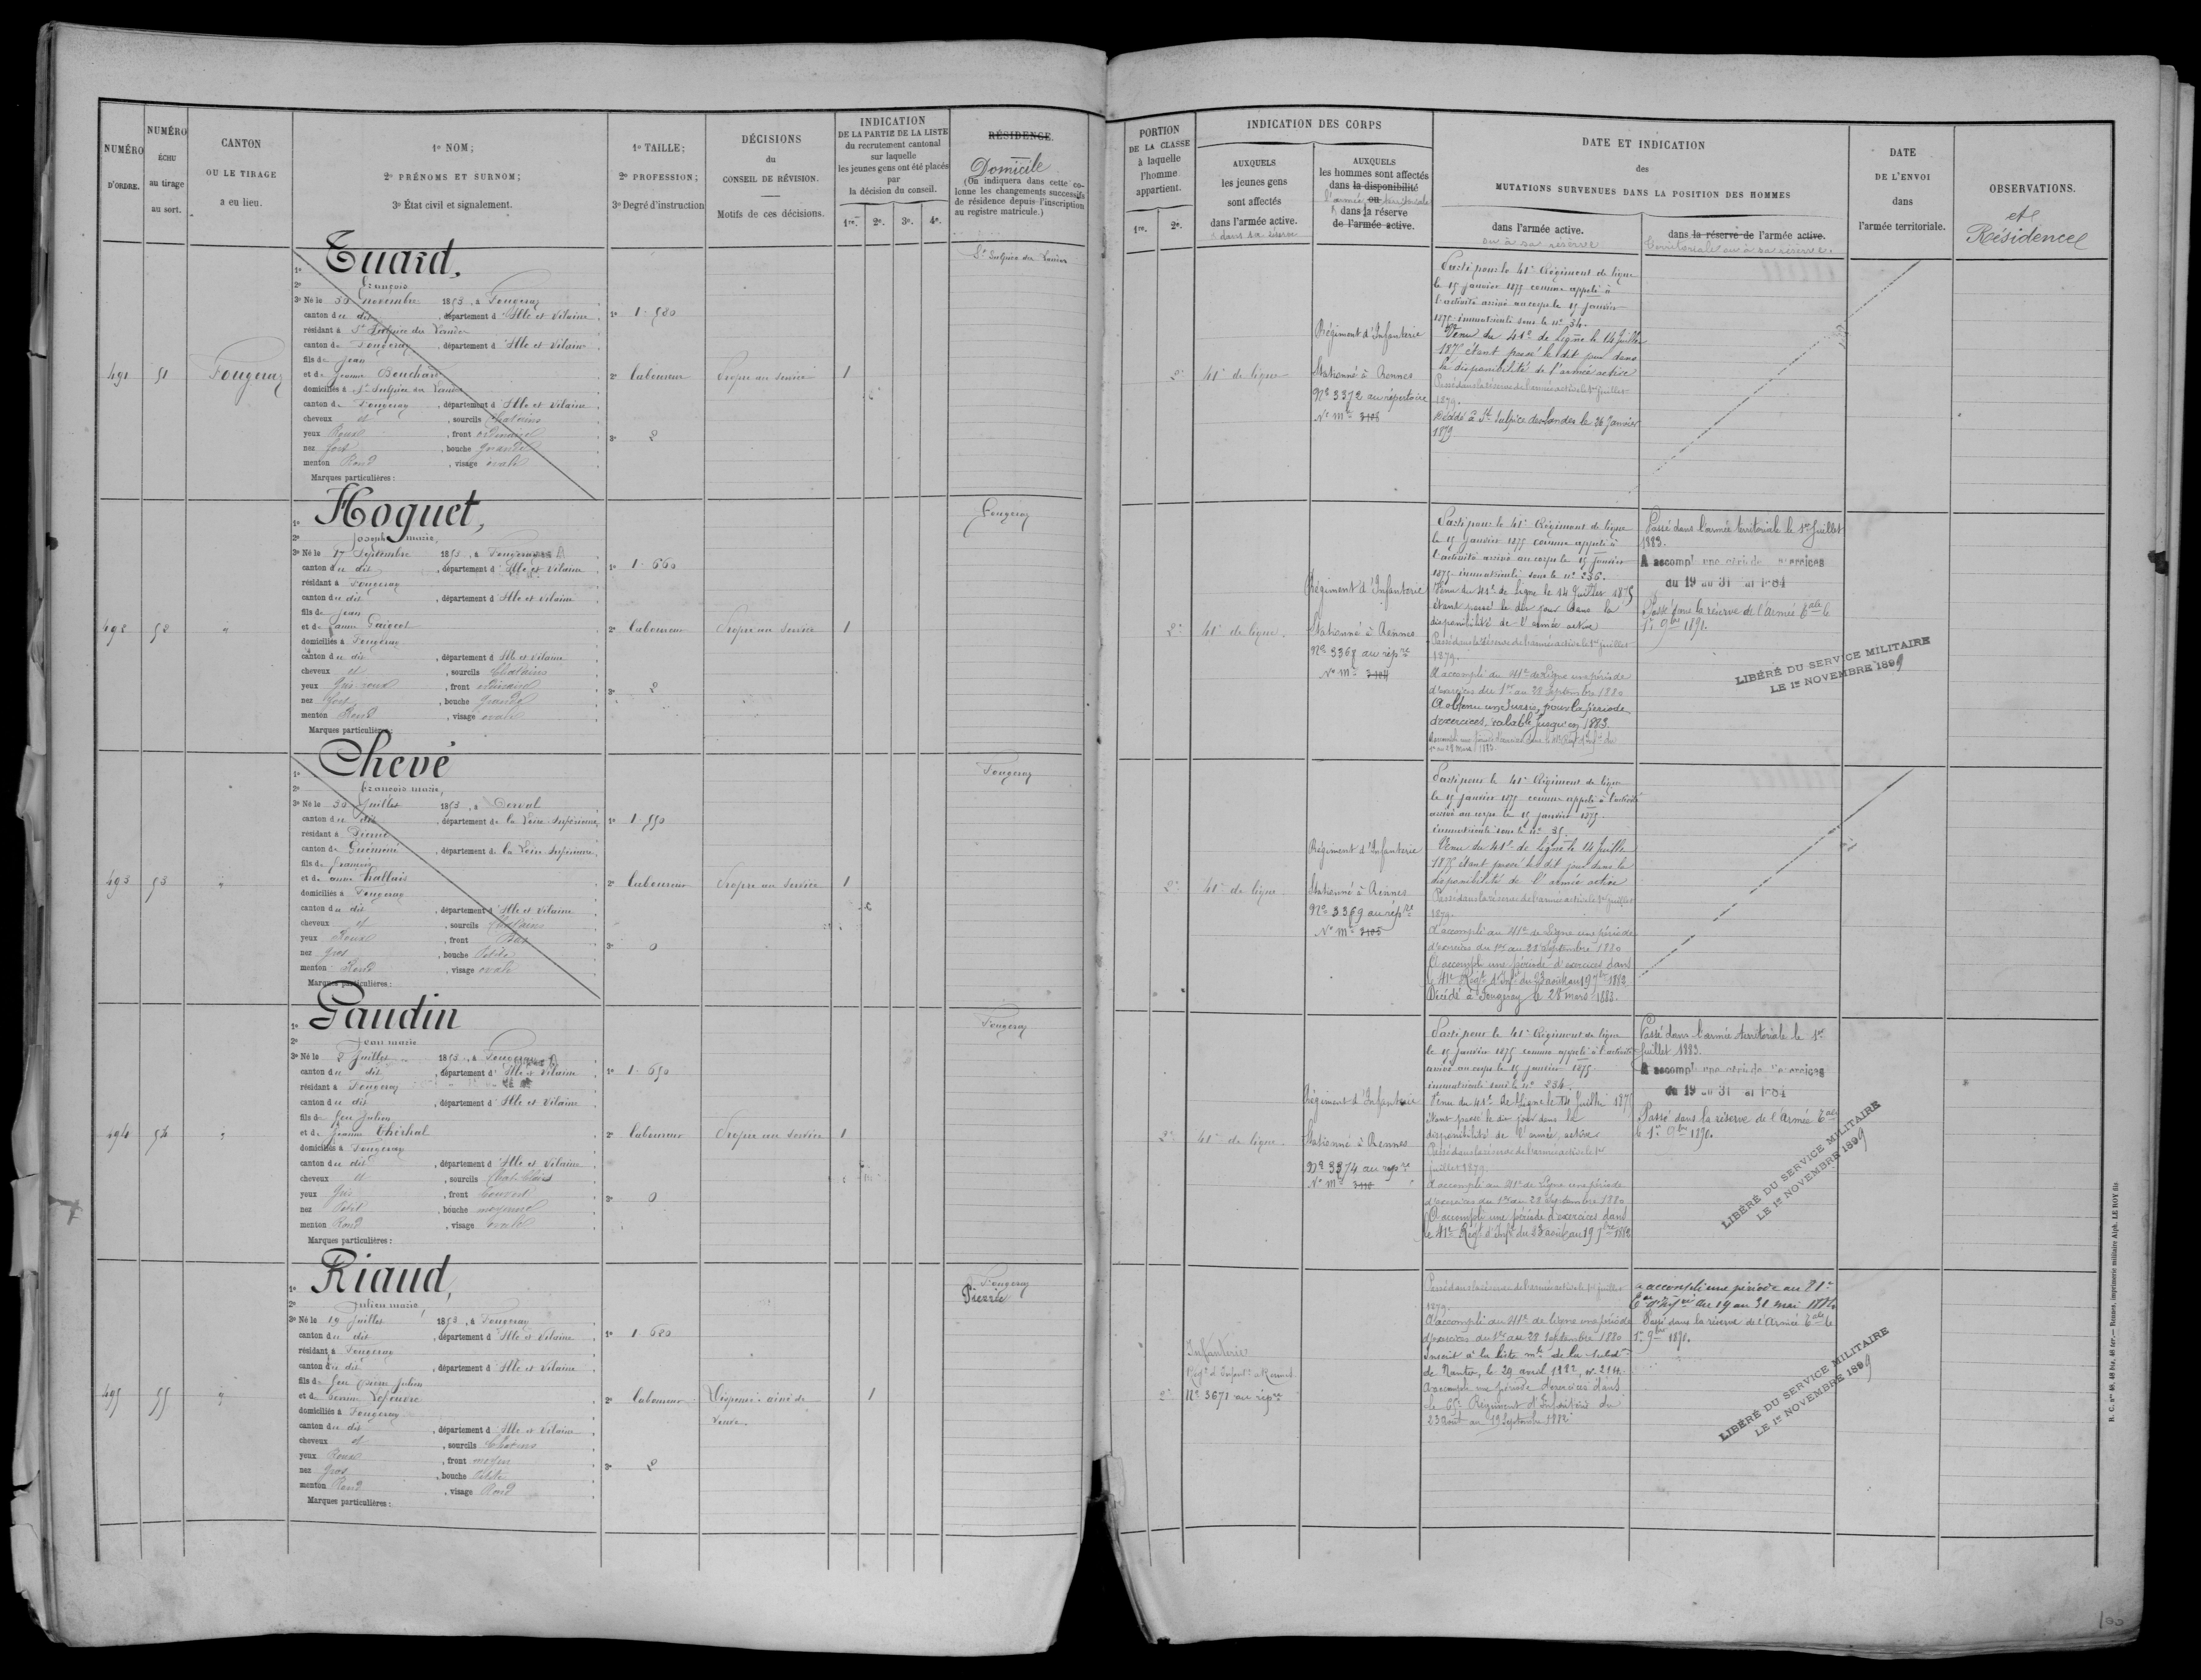 NUMÉRO
D'ORDRE.
NUMÉRO
ÉCHU
au tirage
au sort.
CANTON
OU LE TIRAGE
a eu lieu.
1º NOM;
2º PRÉNOMS ET SURNOM;
3º État civil et signalement.
1º TAILLE;
2º PROFESSION;
3º Degré d'instruction
DÉCISIONS
du
CONSEIL DE RÉVISION.
Motifs de ces décisions.
INDICATION
DE LA PARTIE DE LA LISTE
du recrutement cantonal
sur laquelle
les jeunes gens ont été placés
par
la décision du conseil.
1re. 2e. 3e. 4e.
RÉSIDENCE.
Domicile
(On indiquera dans cette co-
lonne les changements successifs
de résidence depuis l'inscription
au registre matricule.)
PORTION
DE LA CLASSE
à laquelle
l'homme
appartient.
1re. 2e.
INDICATION DES CORPS
AUXQUELS
les jeunes gens
sont affectés
dans l'armée active.
& dans sa réserve
AUXQUELS
les hommes sont affectés
dans la disponibilité
l'armée ou territoriale
& dans la réserve
de l'armée active.
DATE ET INDICATION
des
MUTATIONS SURVENUES DANS LA POSITION DES HOMMES
dans l'armée active.
ou à sa réserve
dans la réserve de l'armée active.
territoriale ou à sa réserve.
DATE
DE L'ENVOI
dans
l'armée territoriale.
OBSERVATIONS.
et
Résidence
491 51 Fougeray
1º Tuard,
2º François
3º Né le 30 novembre 1853, à Fougeray
canton du dit, département d'Ille et Vilaine
résidant à St Sulpice des Landes
canton de Fougeray, département d'Ille et Vilaine
fils de Jean
et de Jeanne Bouchard
domiciliés à St Sulpice des Landes
canton de Fougeray, département d'Ille et Vilaine
cheveux et, sourcils Chatains
yeux Roux, front ordinaire
nez fort, bouche grande
menton Rond, visage ovale
Marques particulières :
1º 1. 580
2º laboureur
3º 2
Propre au service
1
St Sulpice des Landes
2e 41e de ligne
Régiment d'Infanterie
Stationné à Rennes
Nº 3372 au répertoire
Nº Mle 3108
Parti pour le 41e Régiment de ligne
le 15 janvier 1875 comme appelé à
l'activité arrivé au corps le 15 janvier
1875 immatriculé sous le nº 34.
Venu du 41e de Ligne le 14 Juillet
1875 étant passé le dit jour dans
la disponibilité de l'armée active
Passé dans la réserve de l'armée active le 1er juillet
1879.
Décédé à St Sulpice des Landes le 26 Janvier
1879
492 52 "
1º Hoguet,
2º Joseph marie,
3º Né le 17 Septembre 1853, à Fougeray
canton du dit, département d'Ille et Vilaine
résidant à Fougeray
canton du dit, département d'Ille et Vilaine
fils de Jean
domiciliés à Fougeray
canton du dit, département d'Ille et Vilaine
cheveux et, sourcils Chatains
yeux Gris roux, front ordinaire
nez fort, bouche grande
menton Rond, visage ovale
Marques particulières :
1º 1. 660
2º laboureur
3º 2
Propre au service
1
Fougeray
2e 41e de ligne.
Régiment d'Infanterie
Stationné à Rennes
Nº 3368 au répre
Nº Mle 3104
Parti pour le 41e Régiment de ligne
le 15 janvier 1875 comme appelé à
l'activité arrivé au corps le 15 janvier
1875 immatriculé sous le nº 236.
Venu du 41e de Ligne le 14 Juillet 1875
étant passé le dit jour dans la
disponibilité de l'armée active
Passé dans la réserve de l'armée active le 1er juillet
1879.
A accompli au 41e de Ligne une période
d'exercices du 1er au 28 Septembre 1880
A obtenu un sursis pour la période
d'exercices, valable jusqu'en 1883.
Passé dans l'armée territoriale le 1er Juillet
1883.
A accompli une période d'exercices
du 19 au 31 mai 1884
Passé dans la réserve de l'Armée Tale le
1er 9bre 1891.
LIBÉRÉ DU SERVICE MILITAIRE
LE 1er NOVEMBRE 1899
493 53 "
1º Chevé
2º François marie,
3º Né le 30 Juillet 1853, à Derval
canton du dit, département de la Loire Inférieure
résidant à Pierric
canton de Guémené, département de la Loire Inférieure
fils de François
et de anne Hallais
domiciliés à Fougeray
canton du dit, département d'Ille et Vilaine
cheveux et, sourcils Chatains
yeux Roux, front Bas
nez Gros, bouche Petite
menton Rond, visage ovale
Marques particulières :
1º 1. 550
2º laboureur
3º 0
Propre au service
1
Fougeray
2e 41e de ligne
Régiment d'Infanterie
Stationné à Rennes
Nº 3369 au répre
Nº Mle 3105
Parti pour le 41e Régiment de ligne
le 15 janvier 1875 comme appelé à l'activité
arrivé au corps le 15 janvier 1875.
immatriculé sous le nº 35.
Venu du 41e de Ligne le 14 Juillet
1875 étant passé le dit jour dans la
disponibilité de l'armée active
Passé dans la réserve de l'armée active le 1er juillet
1879.
A accompli au 41e de Ligne une période
d'exercices du 1er au 28 Septembre 1880
A accompli une période d'exercices dans
le 41e Régt d'Infie du 23 août au 19 7bre 1882
Décédé à Fougeray le 28 mars 1883.
494 54 "
1º Gaudin
2º Jean marie
3º Né le 8 Juillet 1853, à Fougeray
canton du dit, département d'Ille et Vilaine
résidant à Fougeray
canton du dit, département d'Ille et Vilaine
fils de feu Julien
domiciliés à Fougeray
canton du dit, département d'Ille et Vilaine
cheveux et, sourcils
yeux Gris, front Couvert
nez Petit, bouche moyenne
menton Rond, visage ovale
Marques particulières :
1º 1. 650
2º laboureur
3º 0
Propre au service
1
Fougeray
2e 41e de ligne
Régiment d'Infanterie
Stationné à Rennes
Nº 3374 au répre
Nº Mle 3110
Parti pour le 41e Régiment de ligne
le 15 janvier 1875 comme appelé à l'activité
arrivé au corps le 15 janvier 1875
immatriculé sous le nº 234.
Venu du 41e de Ligne le 14 Juillet 1875
étant passé le dit jour dans la
disponibilité de l'armée active
Passé dans la réserve de l'armée active le 1er
juillet 1879.
A accompli au 41e de Ligne une période
d'exercices du 1er au 28 Septembre 1880
A accompli une période d'exercices dans
le 41e Régt d'Infie du 23 août au 19 7bre 1882
Passé dans l'armée territoriale le 1er
Juillet 1883.
A accompli une période d'exercices
du 19 au 31 mai 1884
Passé dans la réserve de l'Armée Tale
le 1er 9bre 1891.
LIBÉRÉ DU SERVICE MILITAIRE
LE 1er NOVEMBRE 1899
495 55 "
1º Riaud,
2º Julien marie,
3º Né le 19 Juillet 1853, à Fougeray
canton du dit, département d'Ille et Vilaine
résidant à Fougeray
canton du dit, département d'Ille et Vilaine
fils de feu Pierre Julien
domiciliés à Fougeray
canton du dit, département d'Ille et Vilaine
cheveux et, sourcils Chatains
yeux Roux, front moyen
nez Gros, bouche Petite
menton Rond, visage Rond
Marques particulières :
1º 1. 620
2º laboureur
3º 2
Dispensé : aîné de
Veuve
1
Fougeray
Pierric
2e
Infanterie
Régt d'Infantie à Rennes
Nº 3671 au répre
Passé dans la réserve de l'armée active le 1er juillet
1879.
A accompli au 41e de ligne une période
d'exercices du 1er au 28 Septembre 1880
Inscrit à la liste mle de la subdon
de Nantes, le 29 avril 1882, nº 2114.
A accompli une période d'exercices dans
le 65e Régiment d'Infanterie du
23 Août au 19 Septembre 1882
a accompli une période au 81e
Ter d'Infie du 19 au 31 mai 1884
Passé dans la réserve de l'Armée Tale le
1er 9bre 1891.
LIBÉRÉ DU SERVICE MILITAIRE
LE 1er NOVEMBRE 1899
R. C. nos 48, 48 bis, 48 ter.— Rennes, imprimerie militaire Alph. LE ROY fils